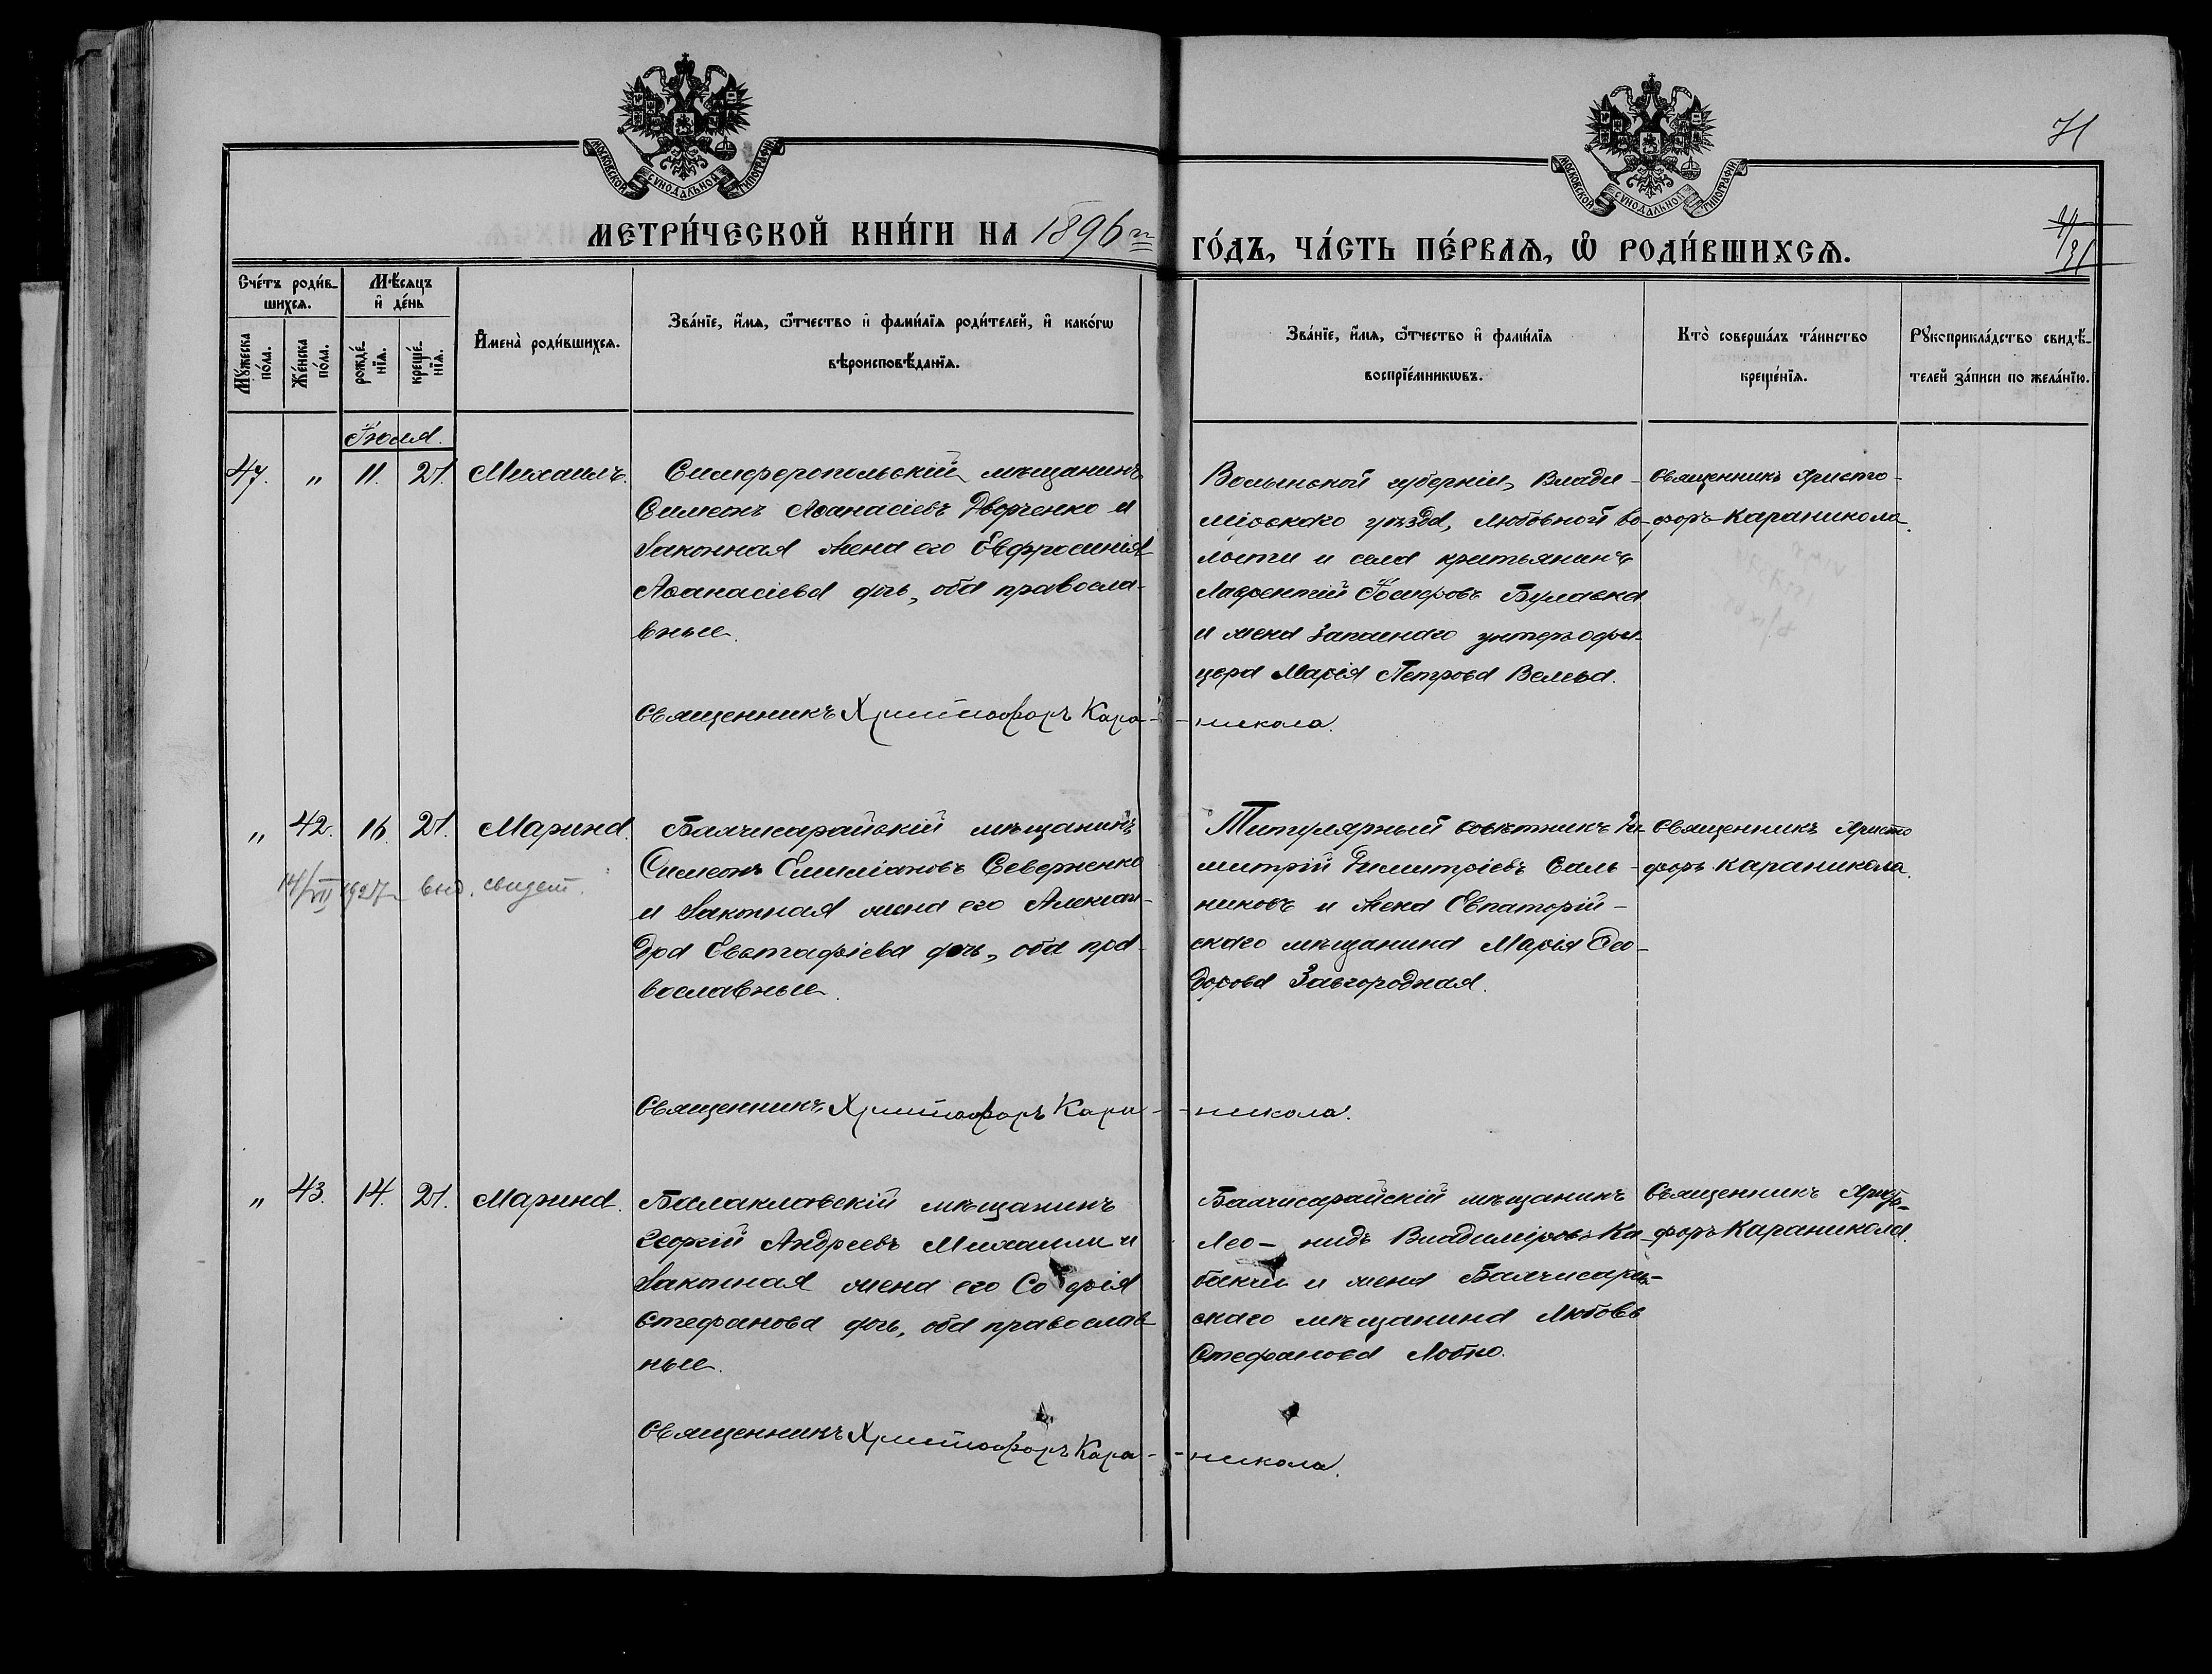 71
МОСКОВСКОЙ СѴНОДАЛЬНОЙ ТИПОГРАФІИ
МОСКОВСКОЙ СѴНОДАЛЬНОЙ ТИПОГРАФІИ
МЕТРИ́ЧЕСКОЙ КНИ́ГИ НА 1896 г҃
ГО́ДЪ, ЧА́СТЬ ПЕ́РВАѦ, Ѡ҆ РОДИ́ВШИХСѦ.
Сче́тъ роди́в-
шихсѧ.
Мꙋ́жеска по́ла.
Же́нска по́ла.
Мѣ́сѧцъ
и҆ де́нь
рожде́нїѧ.
креще́нїѧ.
И҆мена̀ роди́вшихсѧ.
Зва́нїе, и҆́мѧ, ѻ҆́тчество и҆ фами́лїѧ роди́телей, и҆ како́гѡ
вѣроисповѣ́данїѧ.
Зва́нїе, и҆́мѧ, ѻ҆́тчество и҆ фами́лїѧ
воспрїе́мникѡвъ.
Кто̀ соверша́лъ та́инство
креще́нїѧ.
Рꙋкоприкла́дство свидѣ́-
телей за́писи по жела́нїю.
Іюля.
47. " 11. 21. Михаилъ.
Симферопольскій мѣщанинъ
Симеонъ Аѳанасіевъ Дворченко и
законная жена его Евфросинія
Аѳанасіева дочь, оба правосла-
вные.
Волынской губерніи, Влади-
мірскаго уѣзда, Любовной во-
лости и села крестьянинъ
Лаврентій Іосифовъ Булавка
и жена запаснаго унтеръ офи-
цера Марія Петрова
Священникъ Христо-
форъ Караникола.
Священникъ Христофоръ Кара- - никола.
" 42. 16. 21. Марина.
14/VII 1927 выд. свидет.
Бахчисарайскій мѣщанинъ
Симеонъ Емиліановъ Северненко
и законная жена его Алексан-
дра Евстафіева дочь, оба пра-
вославные.
Титулярный совѣтникъ Ди-
митрій Димитріевъ Саль-
никовъ и жена Евпаторій-
скаго мѣщанина Марія Ѳео-
дорова Завгородная.
Священникъ Христо
форъ Караникола.
Священникъ Христофоръ Кара- - никола.
" 43. 14. 21. Марина.
Балаклавскій мѣщанинъ
Георгій Андреевъ Михаили и
законная жена его Софія
Стефанова дочь, оба православ
ные.
Бахчисарайскій мѣщанинъ
Лео- нидъ Владиміровъ Ка-
бакчи и жена Бахчисарай-
скаго мѣщанина Любовь
Стефанова
Священникъ Христо-
форъ Караникола.
Священникъ Христофоръ Кара- - никола.